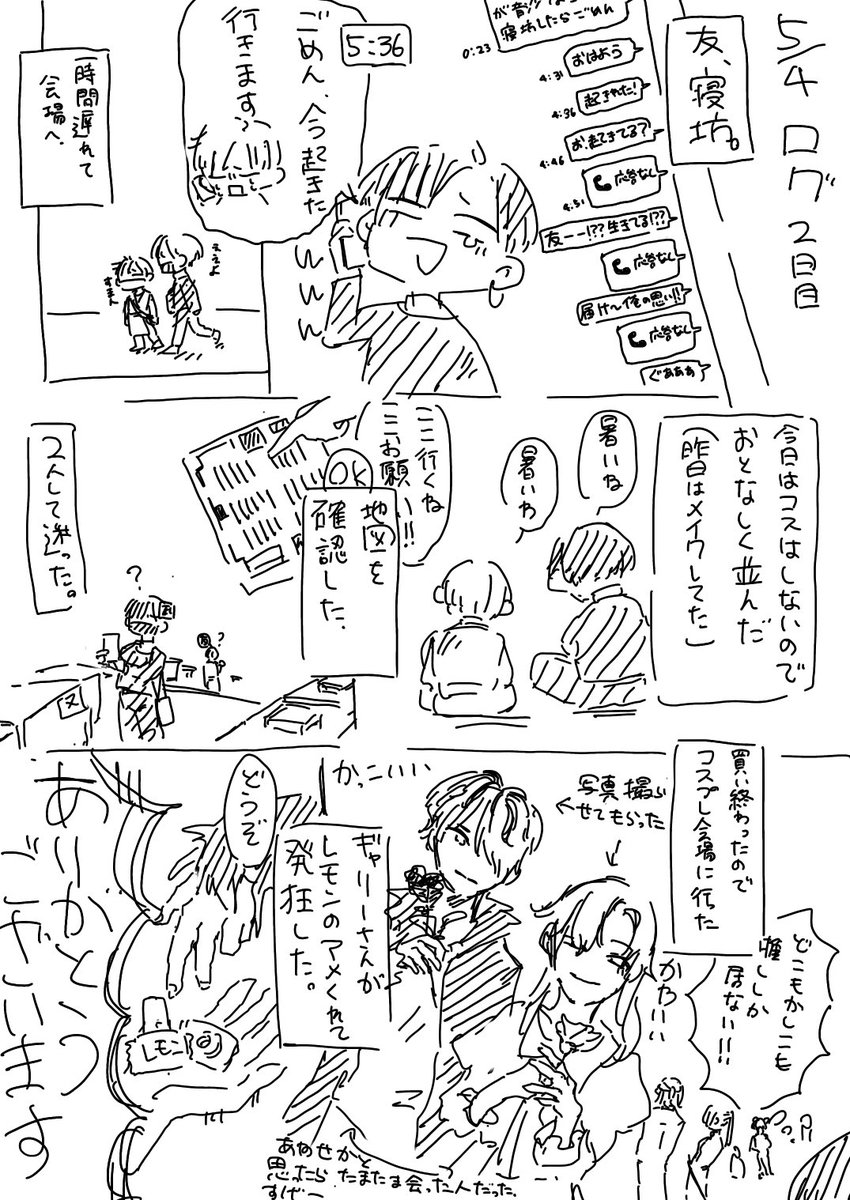 5/4 ログ 2日目
友、寝坊。
寝坊したらごめん
0:23
おはよう
4:31
起きれた!
4:36
お、起きてる?
4:46
応答なし
4:51
友ーー!??生きてる!??
応答なし
届け〜俺の思い!!
応答なし
ぐあああ
5:36
ごめん、今起きた
行きます
www
一時間遅れて
会場へ、
ええよ
すまん
今日はコスはしないので
おとなしく並んだ
(昨日はメイクしてた)
暑いね
暑いね
ここ行くね
ここお願い!!
OK
地図を
確認した、
2人して迷った。
?
?
買い終わったので
コスプレ会場に行った
どこもかしこも
推ししか
居ない!!
かわいい
写真撮ら
せてもらった
かっこいい
ギャリーさんが
レモンのアメくれて
発狂した。
どうぞ
レモン
ありがとう
ございます
あわせかと
思ったら たまたま会った人だった。
すげー